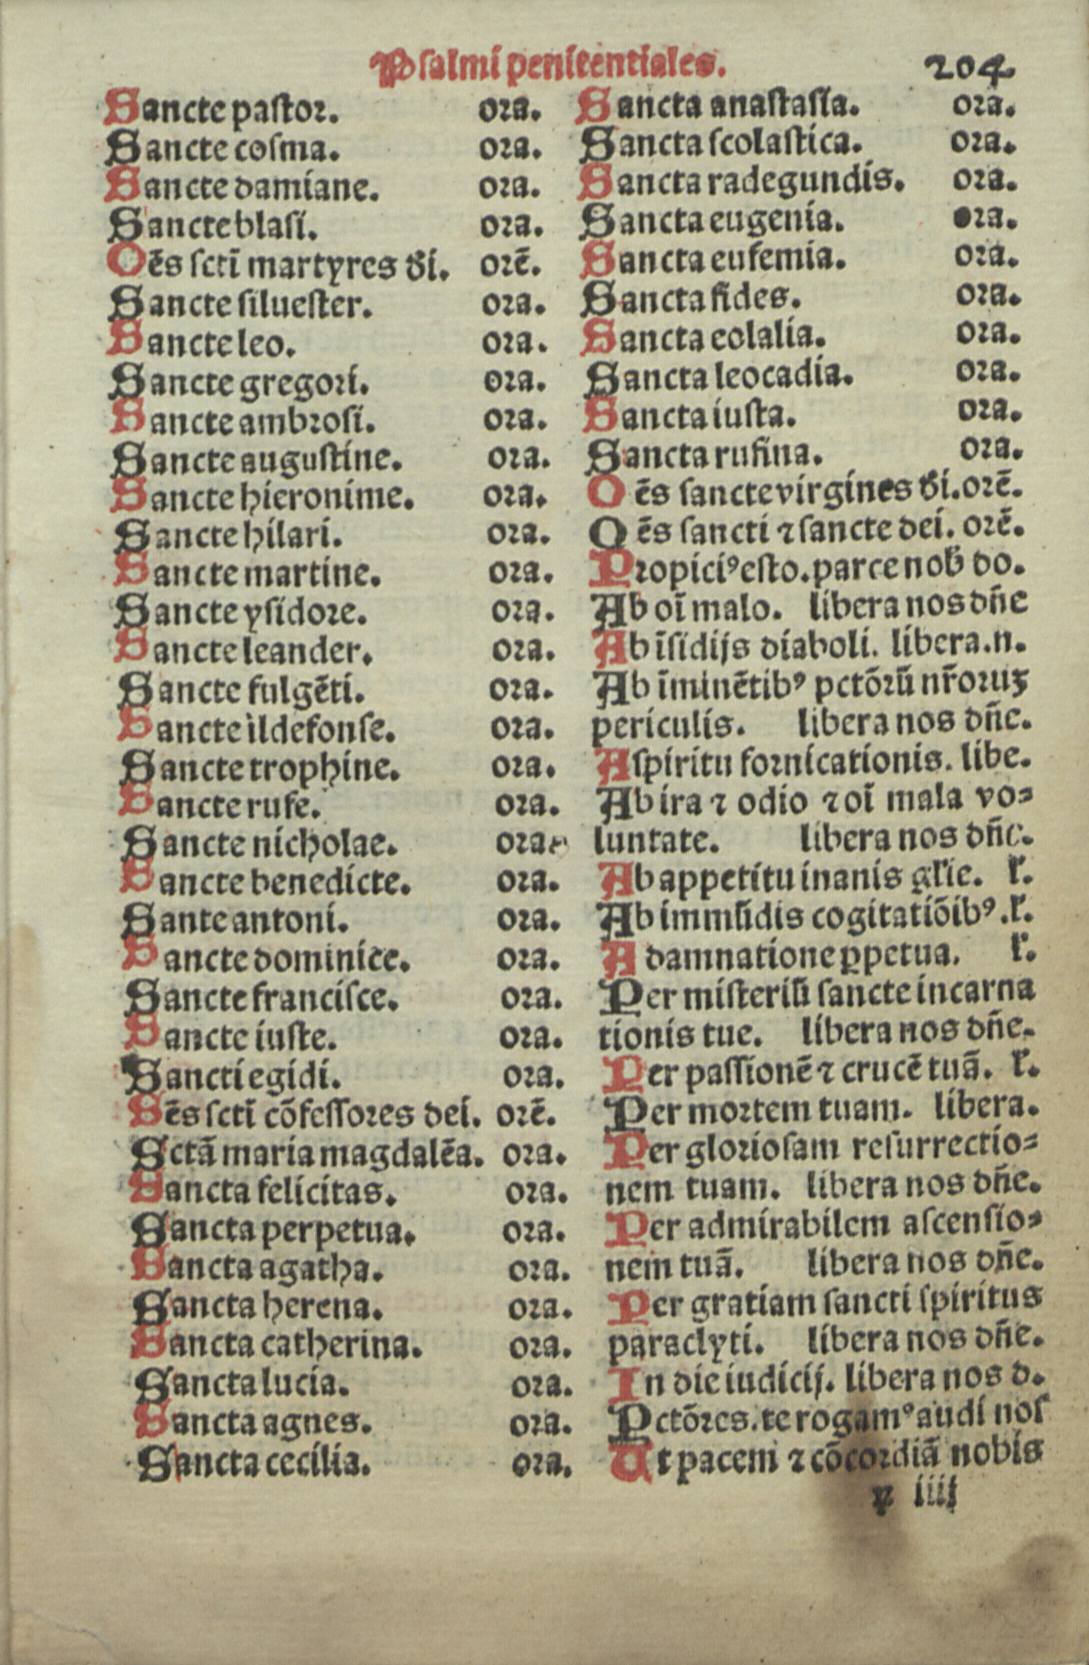 Psalmi penitentiales. 204
Sancte pastor. ora.
Sancte cosma. ora.
Sancte damiane. ora.
Sancte blasi. ora.
Oēs sctī martyres d̄i. orē.
Sancte siluester. ora.
Sancte leo. ora.
Sancte gregori. ora.
Sancte ambrosi. ora.
Sancte augustine. ora.
Sancte hieronime. ora.
Sancte hilari. ora.
Sancte martine. ora.
Sancte ysidore. ora.
Sancte leander. ora.
Sancte fulgēti. ora.
Sancte ildefonse. ora.
Sancte trophine. ora.
Sancte rufe. ora.
Sancte nicholae. ora.
Sancte benedicte. ora.
Sante antoni. ora.
Sancte dominice. ora.
Sancte francisce. ora.
Sancte iuste. ora.
Sancti egidi. ora.
Sēs sctī cōfessores dei. orē.
Sctā maria magdalēa. ora.
Sancta felicitas. ora.
Sancta perpetua. ora.
Sancta agatha. ora.
Sancta herena. ora.
Sancta catherina. ora.
Sancta lucia. ora.
Sancta agnes. ora.
Sancta cecilia. ora.
Sancta anastasia. ora.
Sancta scolastica. ora.
Sancta radegundis. ora.
Sancta eugenia. ora.
Sancta eufemia. ora.
Sancta fides. ora.
Sancta eolalia. ora.
Sancta leocadia. ora.
Sancta iusta. ora.
Sancta rufina. ora.
Oēs sancte virgines d̄i. orē.
Oēs sancti ⁊ sancte dei. orē.
Propiciꝰ esto. parce nob̄ do.
Ab oī malo. libera nos dn̄e
Ab īsidijs diaboli. libera.n.
Ab īminētibꝰ pctōrū nr̄oruꝫ
periculis. libera nos dn̄e.
A spiritu fornicationis. libe.
Ab ira ⁊ odio ⁊ oī mala vo⸗
luntate. libera nos dn̄e.
Ab appetitu inanis gl̄ie. l̄.
Ab immūdis cogitatiōibꝰ. l̄.
A damnatione ꝑpetua. l̄.
Per misteriū sancte incarna
tionis tue. libera nos dn̄e.
Per passionē ⁊ crucē tuā. l̄.
Per mortem tuam. libera.
Per gloriosam resurrectio⸗
nem tuam. libera nos dn̄e.
Per admirabilem ascensio⸗
nem tuā. libera nos dn̄e.
Per gratiam sancti spiritus
paraclyti. libera nos dn̄e.
In die iudicij. libera nos d.
Pctōres. te rogamꝰ audi nos
Ut pacem ⁊ cōcordiā nobis
iiij